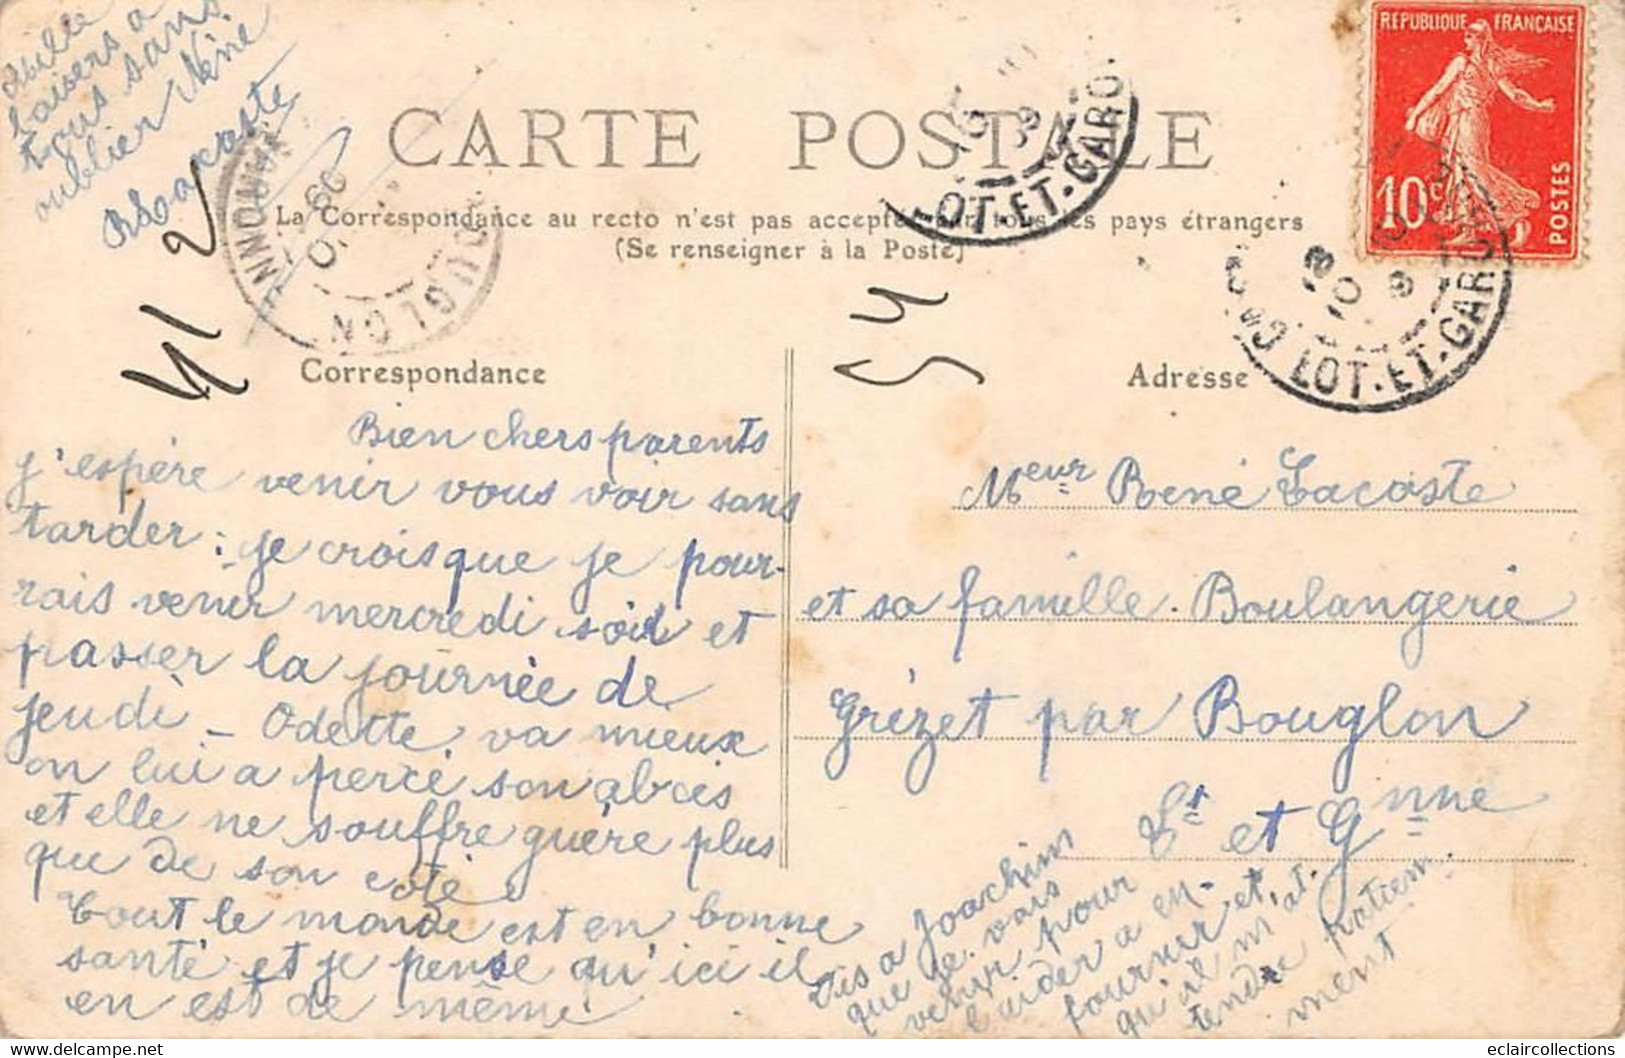 baisers a
tous sans
oublier Nine
CARTE POSTALE
La Correspondance au recto n'est pas acceptée par tous les pays étrangers
(Se renseigner à la Poste)
RÉPUBLIQUE FRANÇAISE
10c
POSTES
LOT-ET-GARO
LOT-ET-GARONNE
BOUGLON
41 2
54
Correspondance
Bien chers parents
j'espère venir vous voir sans
tarder : je crois que je pour-
rais venir mercredi soir et
passer la journée de
jeudi – Odette va mieux
on lui a percé son abcès
et elle ne souffre guère plus
que de son côté
Tout le monde est en bonne
santé et je pense qu'ici il
en est de même
Adresse
Meur René Lacoste
et sa famille. Boulangerie
Grézet par Bouglon
Lt et Gnne
Dis a Joachim
que je vais
venir pour
l'aider a en-
fourner et
qu'il m'at-
tende patiem-
ment
eclaircollections